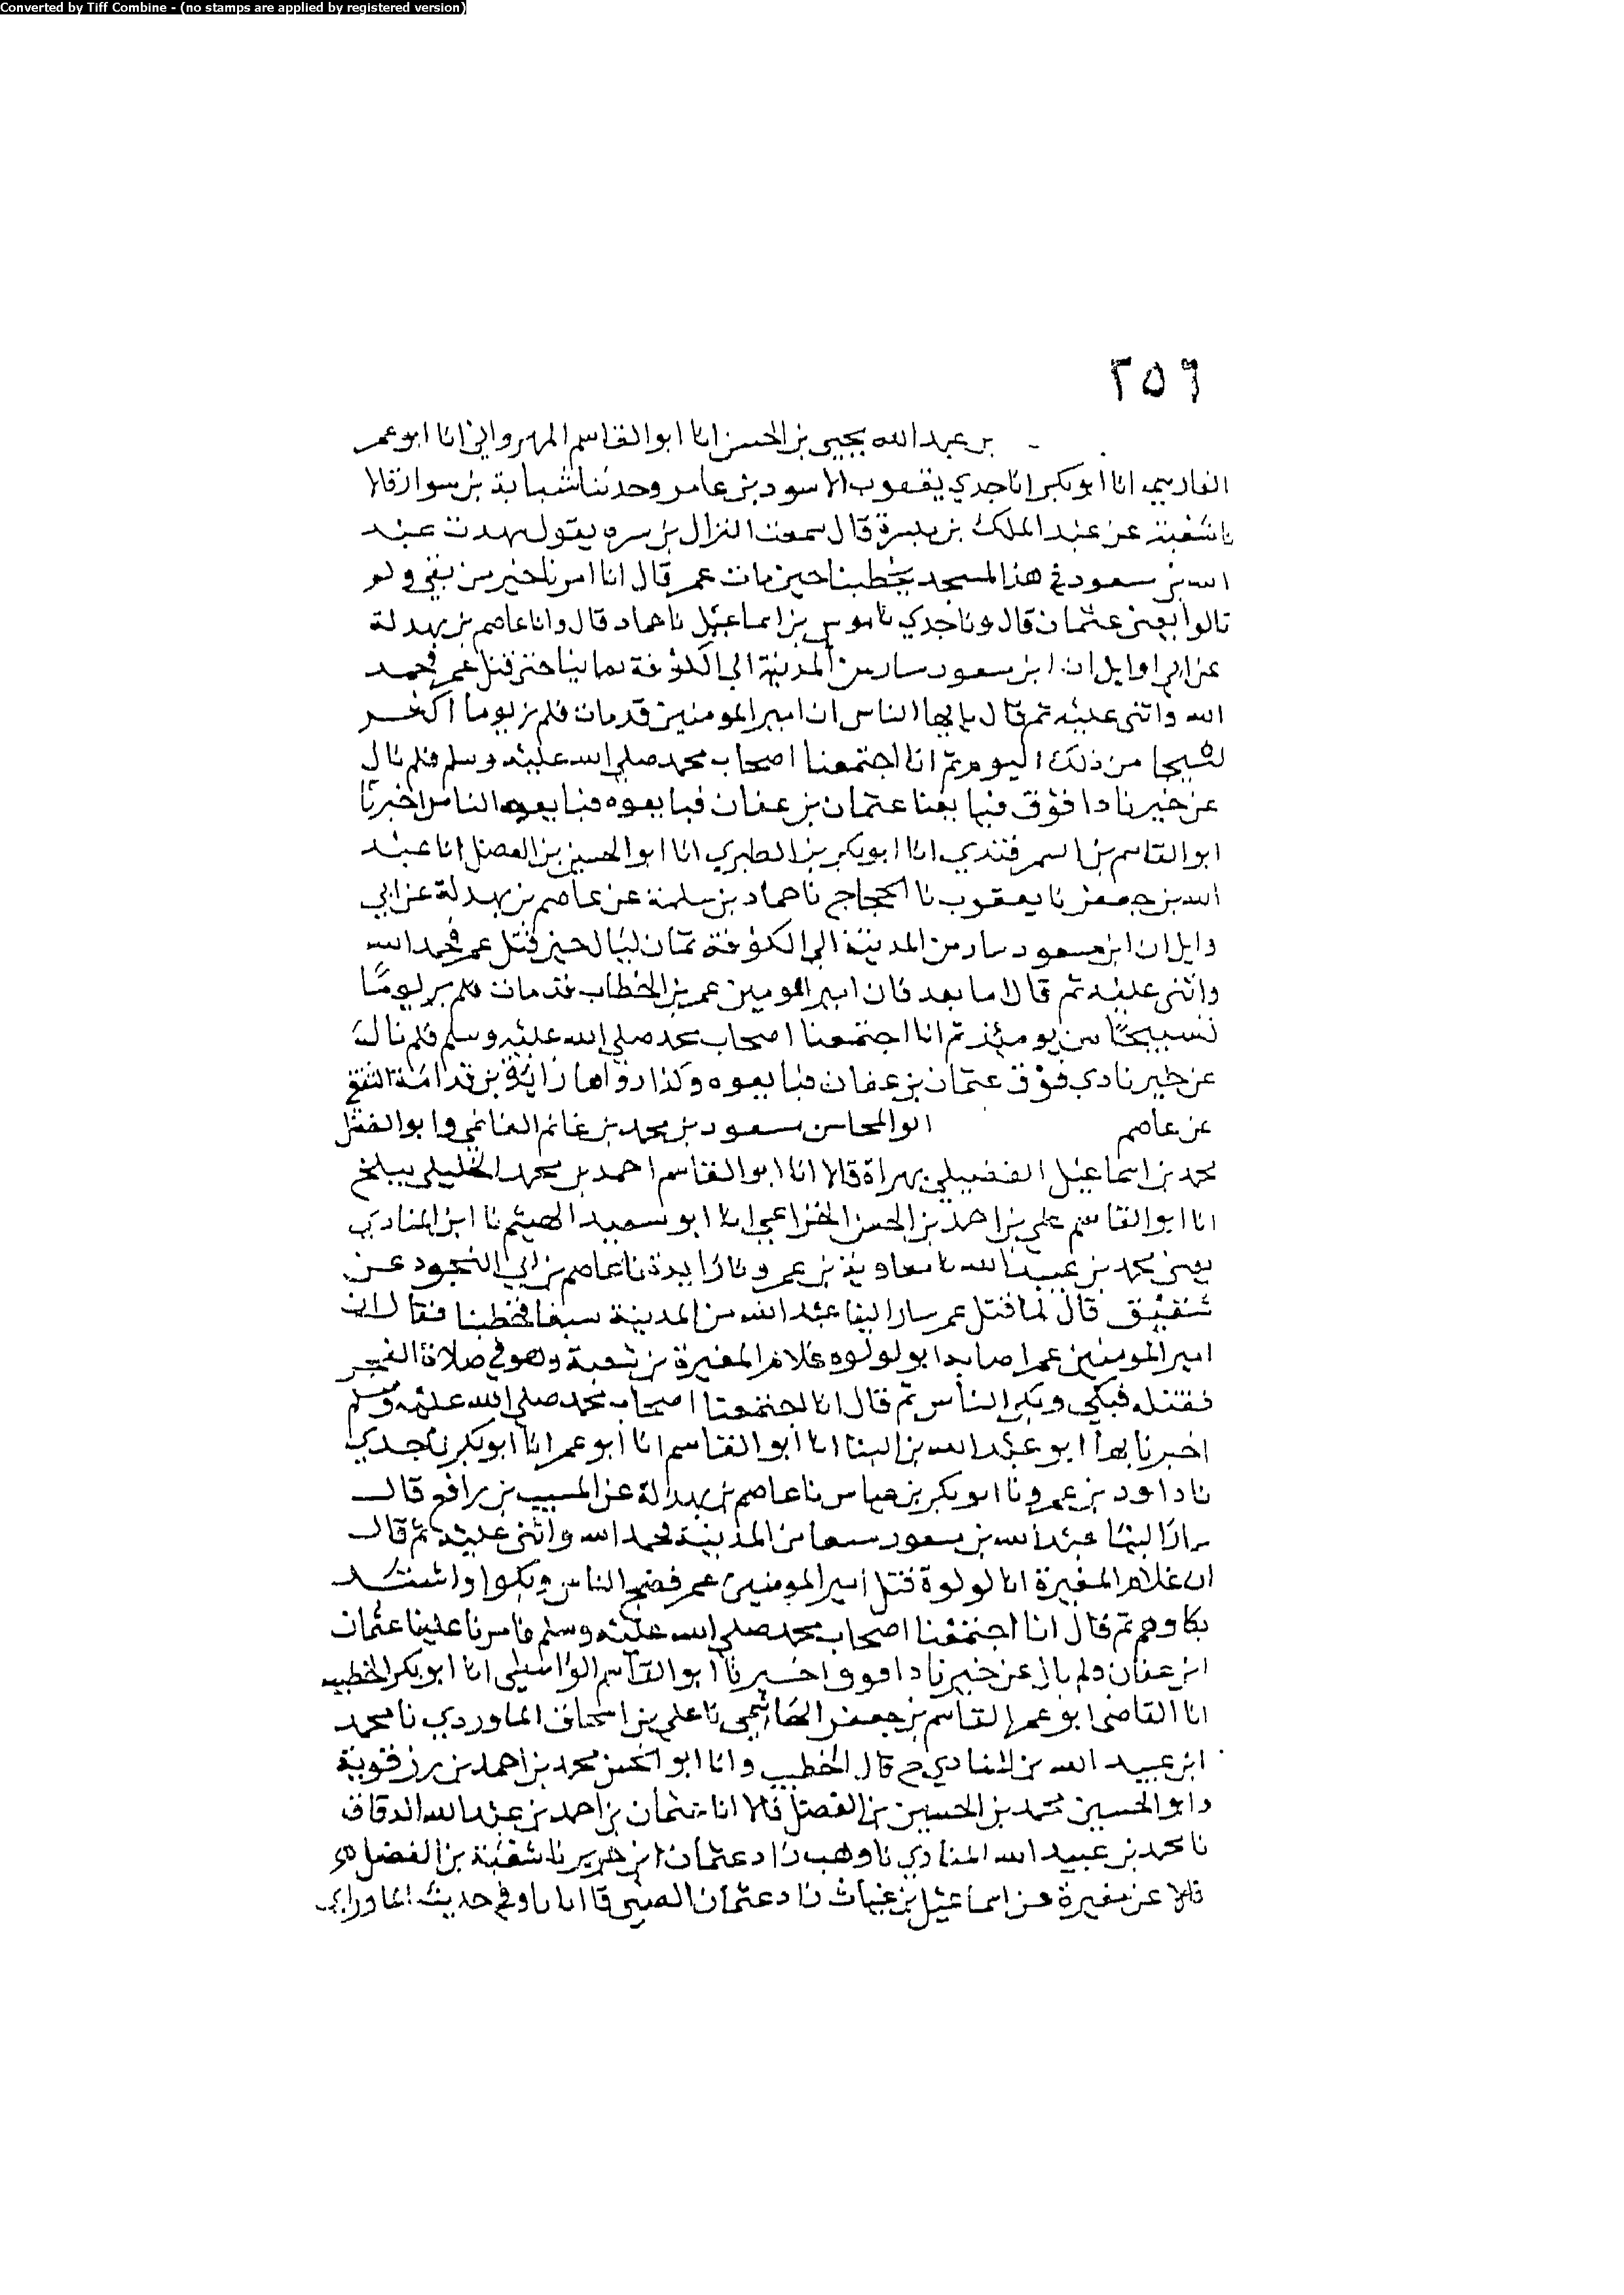 Converted by Tiff Combine - (no stamps are applied by registered version)
٢٥٦
بن عبد الله يحيى بن الحسن انا ابو القاسم المهرواني انا ابو عمر
الفارسي انا ابو بكر انا جدي يعقوب الاسود بن عامر وحدثنا شبابة بن سوار قالا
نا شعبة عن عبد الملك بن ميسرة قال سمعت النزال بن سبره يقول شهدت عبد
الله بن مسعود في هذا المسجد يخطبنا حين مات عمر قال انا امرنا خير من بقي ولم
نالوا يعني عثمان قال ونا جدي نا موسى بن اسماعيل نا حماد قال وانا عاصم بن بهدلة
عن ابي وايل ان ابن مسعود سار من المدينة الى الكوفة ثمانيا حين قتل عمر فحمد
الله واثنى عليه ثم قال يا يها الناس ان امير المومنين قد مات فلم نر يوما اكثر
نشيجا من ذلك اليوم ثم انا اجتمعنا اصحاب محمد صلى الله عليه وسلم فلم نال
عن خيرنا ذا فوق فبايعنا عثمان بن عفان فبايعوه فبايعه الناس اخبرنا
ابو القاسم بن السمرقندي انا ابو بكر بن الطبري انا ابو الحسين بن الفضل انا عبد
الله بن جعفر نا يعقوب نا الحجاج نا حماد بن سلمة عن عاصم بن بهدلة عن ابي
وايل ان ابن مسعود سار من المدينة الى الكوفة ثمان ليال حين قتل عمر فحمد الله
واثنى عليه ثم قال اما بعد فان امير المومين عمر بن الخطاب قد مات فلم ير يومًا
نشيجًا من يومئذ ثم انا اجتمعنا اصحاب محمد صلى الله عليه وسلم فلم نال
عن خيرنا ذي فوق عثمان بن عفان فبايعوه وكذا رواها زايدة بن قدامة الثقفي
عن عاصم ابو المحاسن مسعود بن محمد بن غانم الغانمي وابو الفضل
محمد بن اسماعيل الفضيلي بهراة قالا انا ابو القاسم احمد بن محمد الخليلي ببلخ
انا ابو القاسم علي بن احمد بن الحسن الخزاعي انا ابو سعيد الهيثم نا ابن المنادي
يعني محمد بن عبيد الله نا معاوية بن عمرو نا زايدة نا عاصم بن ابي النجود عن
شقيق قال لما قتل عمر سار الينا عبد الله من المدينة سبعا فخطبنا فقال ان
امير المومنين عمر اصابه ابو لولوه غلام المغيرة بن شعبة وهو في صلاة الفجر
فقتله فبكى وبكى الناس ثم قال انا اجتمعنا اصحاب محمد صلى الله عليه وسلم
اخبرنا بها ابو عبد الله بن البنا انا ابو القاسم انا ابو عمر انا ابو بكر نا جدي
نا داود بن عمرو نا ابو بكر بن عياس نا عاصم بن بهدلة عن المسيب بن رافع قال
سار الينا عبد الله بن مسعود سبعا من المدينة فحمد الله واثنى عليه ثم قال
ان غلام المغيرة ابا لولوة قتل امير المومنين عمر فضج الناس وبكوا واشتد
بكاوهم ثم قال انا اجتمعنا اصحاب محمد صلى الله عليه وسلم فامرنا علينا عثمان
ابن عفان ولم نال عن خيرنا ذا فوق اخبرنا ابو القاسم الواسطي انا ابو بكر الخطيب
انا القاضي ابو عمر القاسم بن جعفر الهاشمي نا علي بن اسحاق الماوردي نا محمد
ابن عبيد الله بن المنادي ح قال الخطيب وانا ابو الحسن محمد بن احمد بن رزقوية
وابو الحسين محمد بن الحسين بن الفضل قالا انا عثمان بن احمد بن عبد الله الدقاق
نا محمد بن عبيد الله المنادي نا وهب زاد عثمان ابن جرير نا شعبة بن الفضل
قالا عن مغيرة عن اسماعيل بن غياث زاد عثمان الضبي قا وفي حديث